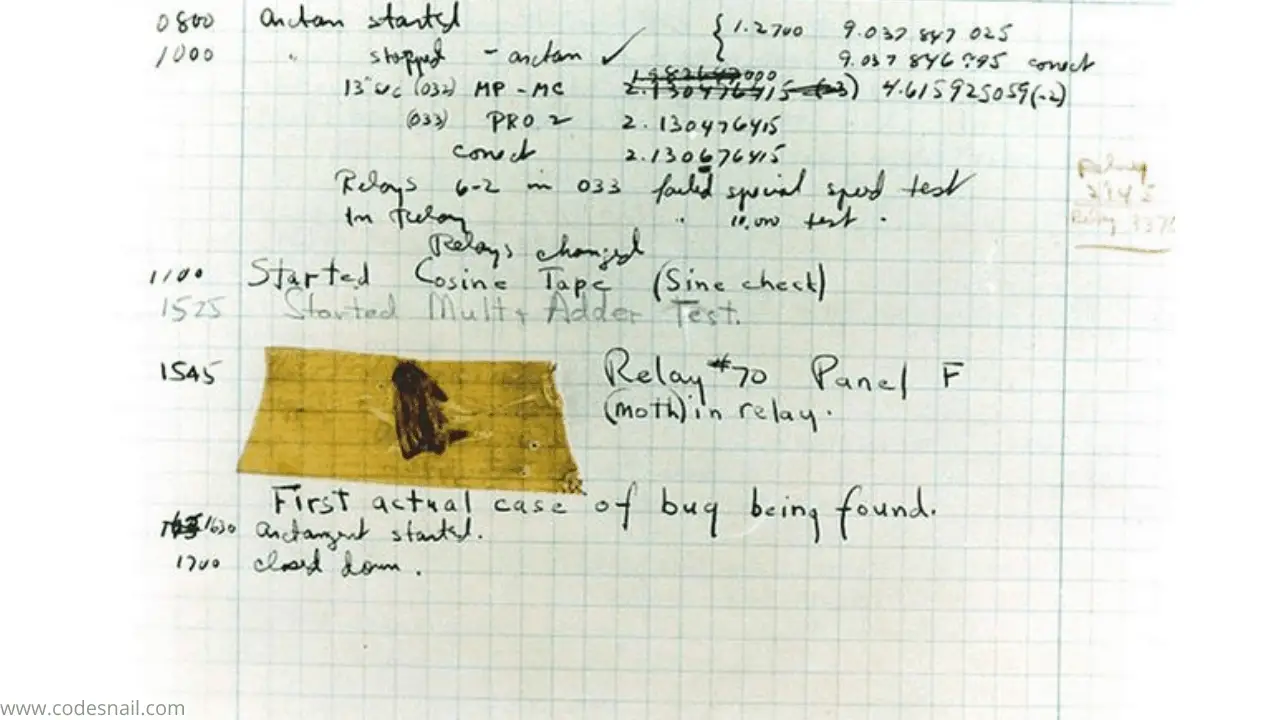 0800 arctan started { 1.2700 9.037 847 025
1000 " stopped - arctan ✓ 9.037 846 995 correct
13"uc (032) MP - MC 4.615925059(-2)
(033) PRO 2 2.130476415
correct 2.130676415
Relays 6-2 in 033 failed special speed test
In Relay " 10,000 test .
Relays changed
Relay
1100 Started Cosine Tape (Sine check)
1525 Started Mult+ Adder Test.
1545 Relay #70 Panel F
(moth) in relay.
First actual case of bug being found.
1630 arctangent started.
1700 closed down .
www.codesnail.com